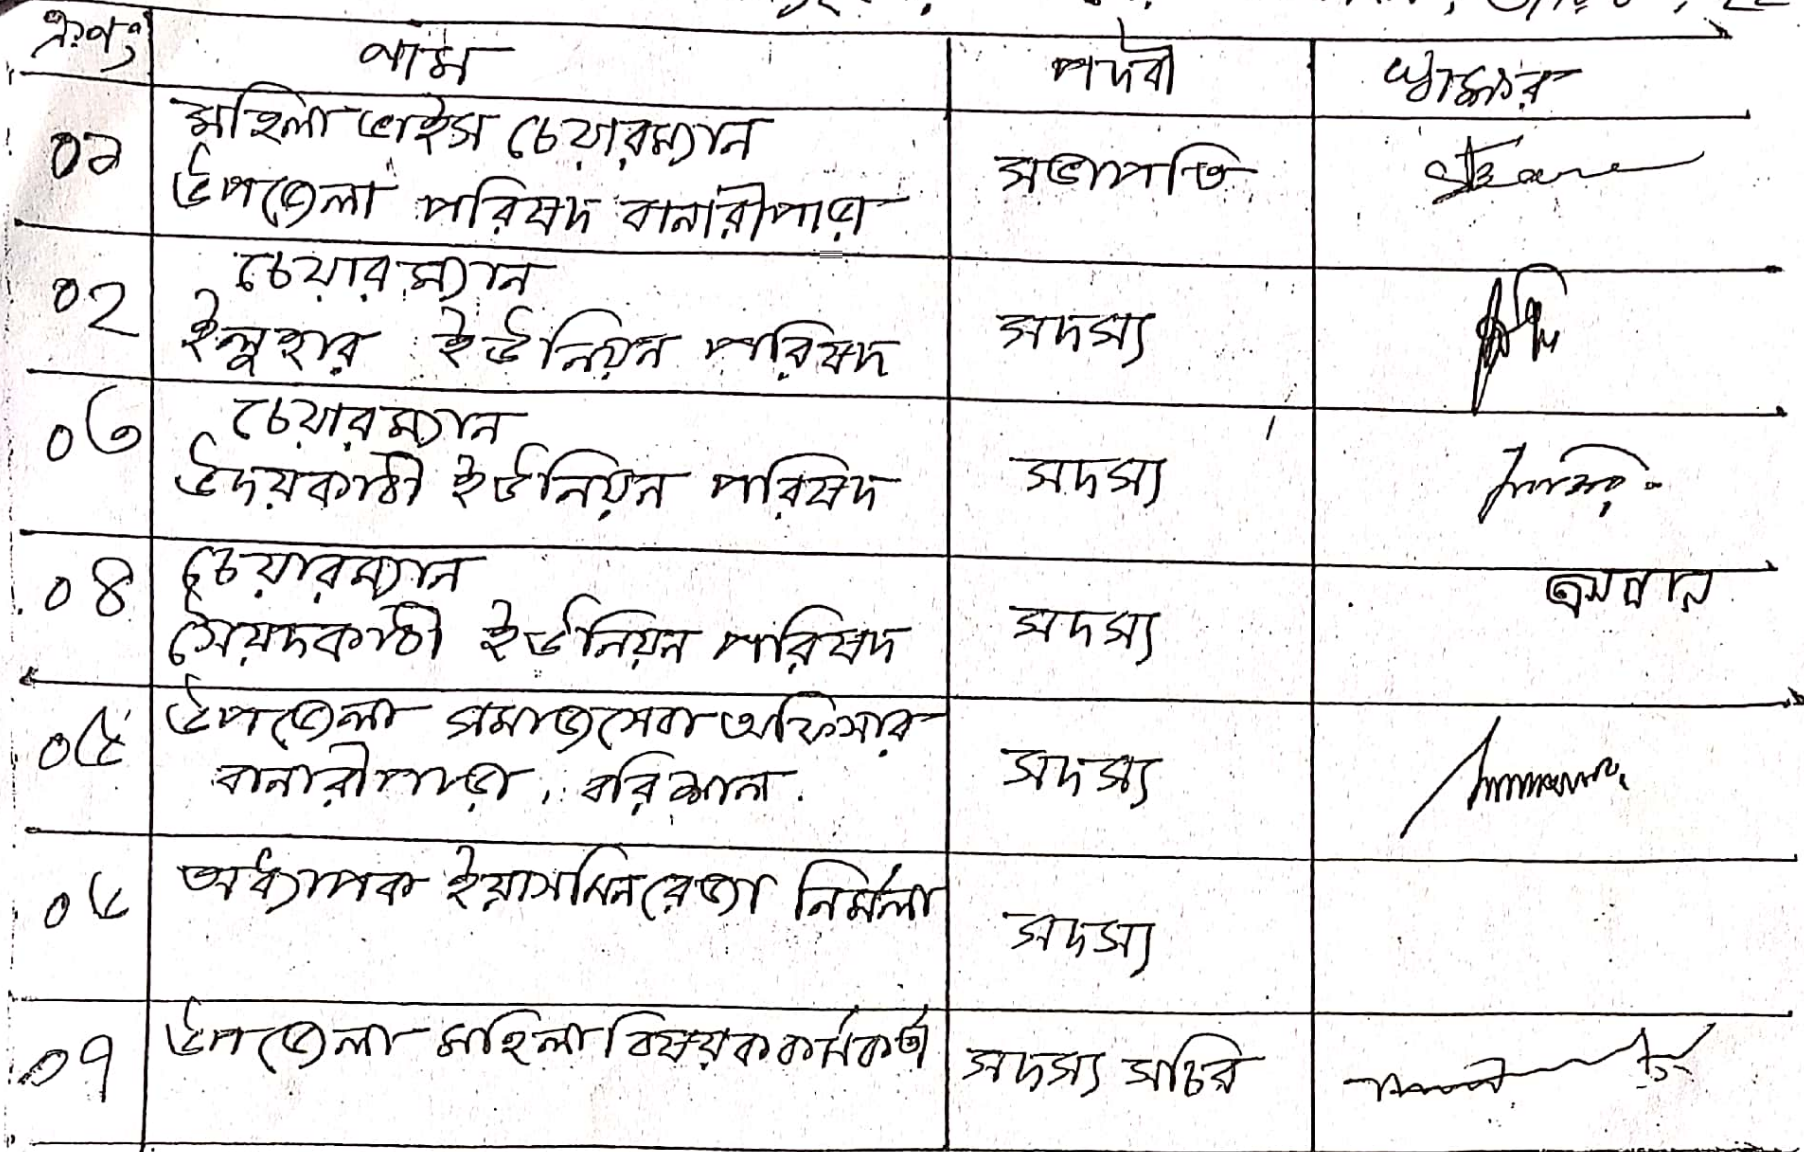 ক্রঃনং নাম পদবী স্বাক্ষর
০১ মহিলা ভাইস চেয়ারম্যান
উপজেলা পরিষদ বানারীপাড়া সভাপতি
০২ চেয়ারম্যান
ইলুহার ইউনিয়ন পরিষদ সদস্য
০৩ চেয়ারম্যান
উদয়কাঠী ইউনিয়ন পরিষদ সদস্য
০৪ চেয়ারম্যান
সৈয়দকাঠী ইউনিয়ন পরিষদ সদস্য
০৫ উপজেলা সমাজসেবা অফিসার
বানারীপাড়া, বরিশাল. সদস্য
০৬ অধ্যাপক ইয়াসমিন রেজা নির্মলা সদস্য
০৭ উপজেলা মহিলা বিষয়ক কর্মকর্তা সদস্য সচিব